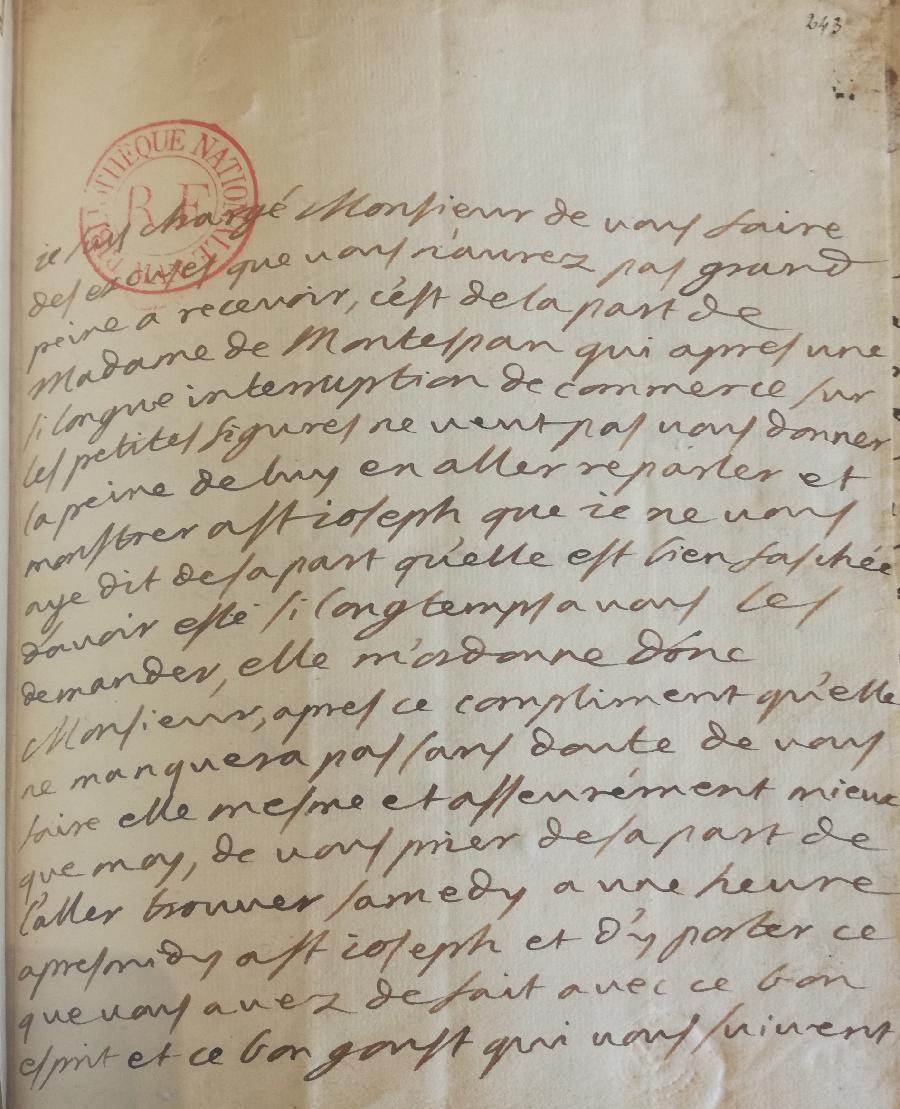 243
BIBLIOTHEQUE NATIONALE
R F
je suis chargé Monsieur de vous faire
des excuses que vous n'aurez pas grand
peine a recevoir, c'est de la part de
Madame de Montespan qui apres une
si longue interruption de commerce sur
les petites figures ne veut pas vous donner
la peine de luy en aller reparler et
monstrer a st ioseph que ie ne vous
aye dit de sa part qu'elle est bien faschée
d'avoir esté si longtemps a vous les
demander, elle m'ordonne donc
Monsieur, apres ce compliment qu'elle
ne manquera pas sans doute de vous
faire elle mesme et asseurément mieux
que moy, de vous prier de sa part de
l'aller trouver samedy a une heure
apres midy a st ioseph et d'y porter ce
que vous avez de fait avec ce bon
esprit et ce bon goust qui vous suivent